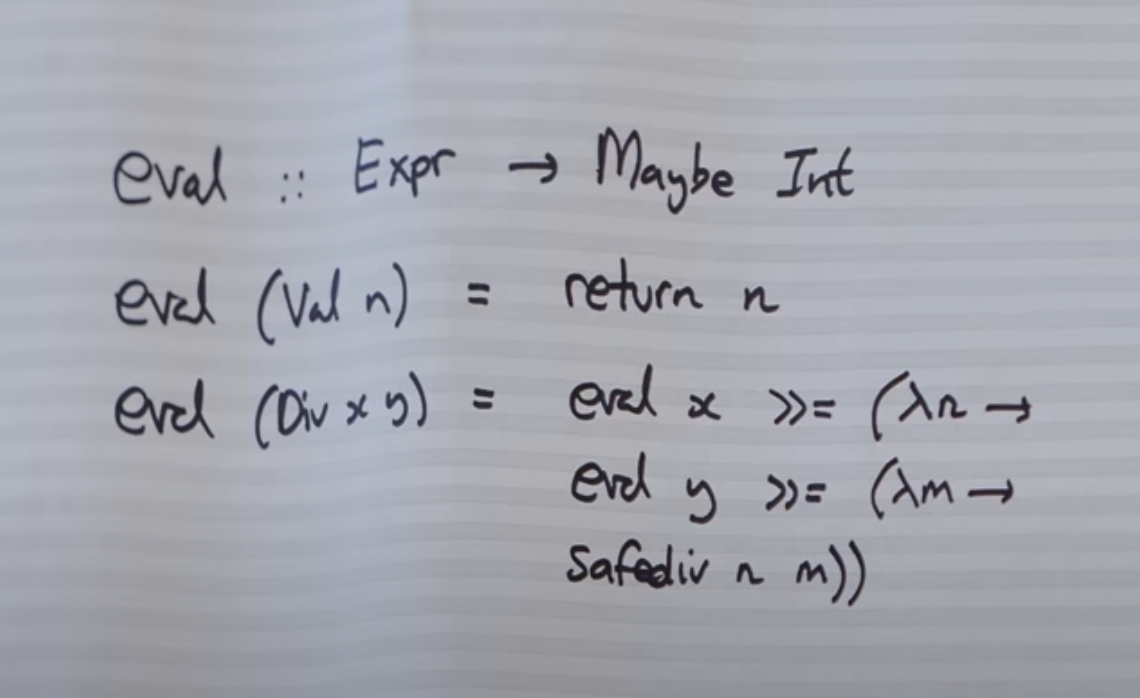 eval :: Expr → Maybe Int
eval (Val n) = return n
eval (Div x y) = eval x >>= (λn →
eval y >>= (λm →
safediv n m))